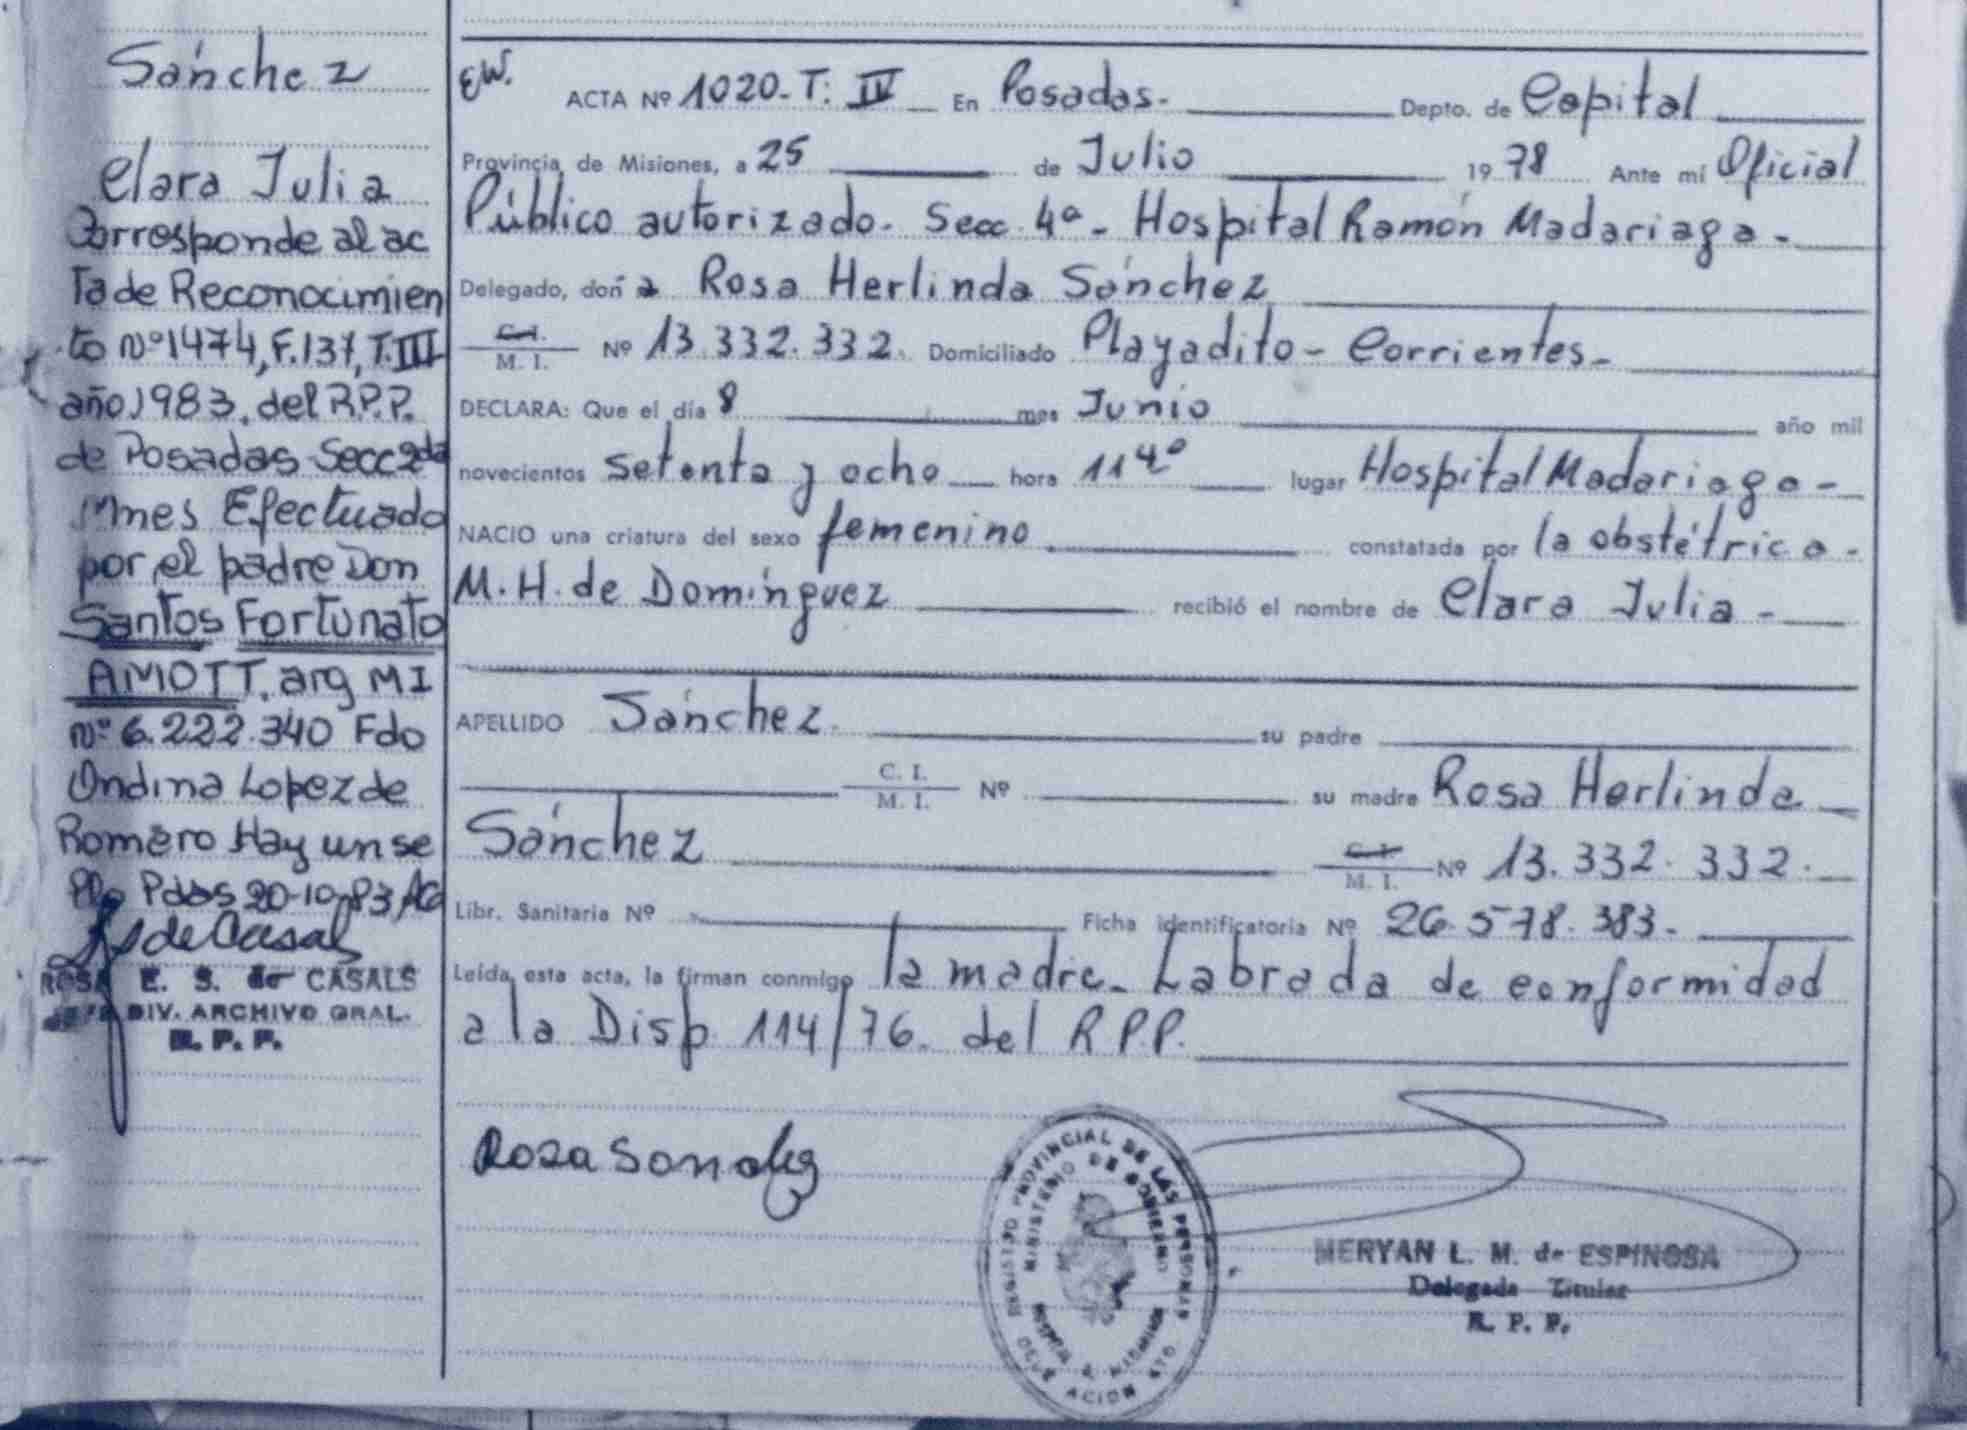 Sánchez
Clara Julia
Corresponde al ac
ta de Reconocimien
to Nº 1474, F.137, T.III
año 1983. del R.P.P.
de Posadas Secc 2da
Mnes Efectuado
por el padre Don
Santos Fortunato
AMOTT. arg MI
Nº 6.222.340 Fdo
Ondina Lopez de
Romero Hay un se
llo Pdas 20-10-83
S de Casals
ROSA E. S. de CASALS
DIV. ARCHIVO GRAL.
R. P. P.
EW.
ACTA Nº 1020-T: IV En Posadas- Depto. de Capital
Provincia de Misiones, a 25 de Julio 1978 Ante mí Oficial
Público autorizado- Secc 4ª- Hospital Ramón Madariaga-
Delegado, doña Rosa Herlinda Sánchez
C. I.
M. I. Nº 13.332.332. Domiciliado Playadito- Corrientes-
DECLARA: Que el día 8 mes Junio año mil
novecientos setenta y ocho hora 11 40 lugar Hospital Madariaga-
NACIO una criatura del sexo femenino constatada por la obstétrica-
M. H. de Domínguez recibió el nombre de Clara Julia-
APELLIDO Sánchez. su padre
C. I.
M. I. Nº su madre Rosa Herlinda
Sánchez C. I.
M. I. Nº 13.332.332.
Libr. Sanitaria Nº Ficha identificatoria Nº 26.578.383.-
Leída esta acta, la firman conmigo la madre- Labrada de conformidad
a la Disp. 114/76. del R.P.P.
Rosa Sanchez
REGISTRO PROVINCIAL DE LAS PERSONAS
MINISTERIO DE GOBIERNO
MERYAN L. M. de ESPINOSA
Delegada Titular
R. P. P.